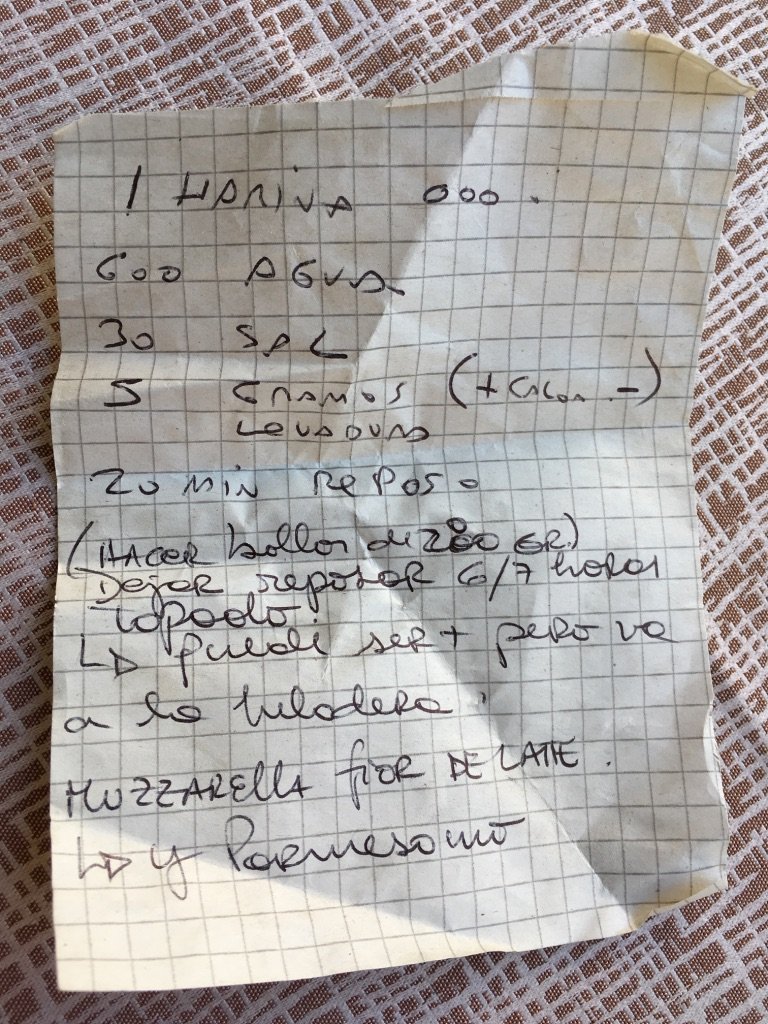 1 HARINA 000.
600 AGUA
30 SAL
5 GRAMOS (+ CALOR -)
LEVADURA
20 MIN REPOSO
(HACER bollos de 280 GR.)
DEJAR reposar 6/7 horas
tapado
↳ puede ser + pero va
a la heladera.
MUZZARELLA fior DE LATTE.
↳ y Parmesano